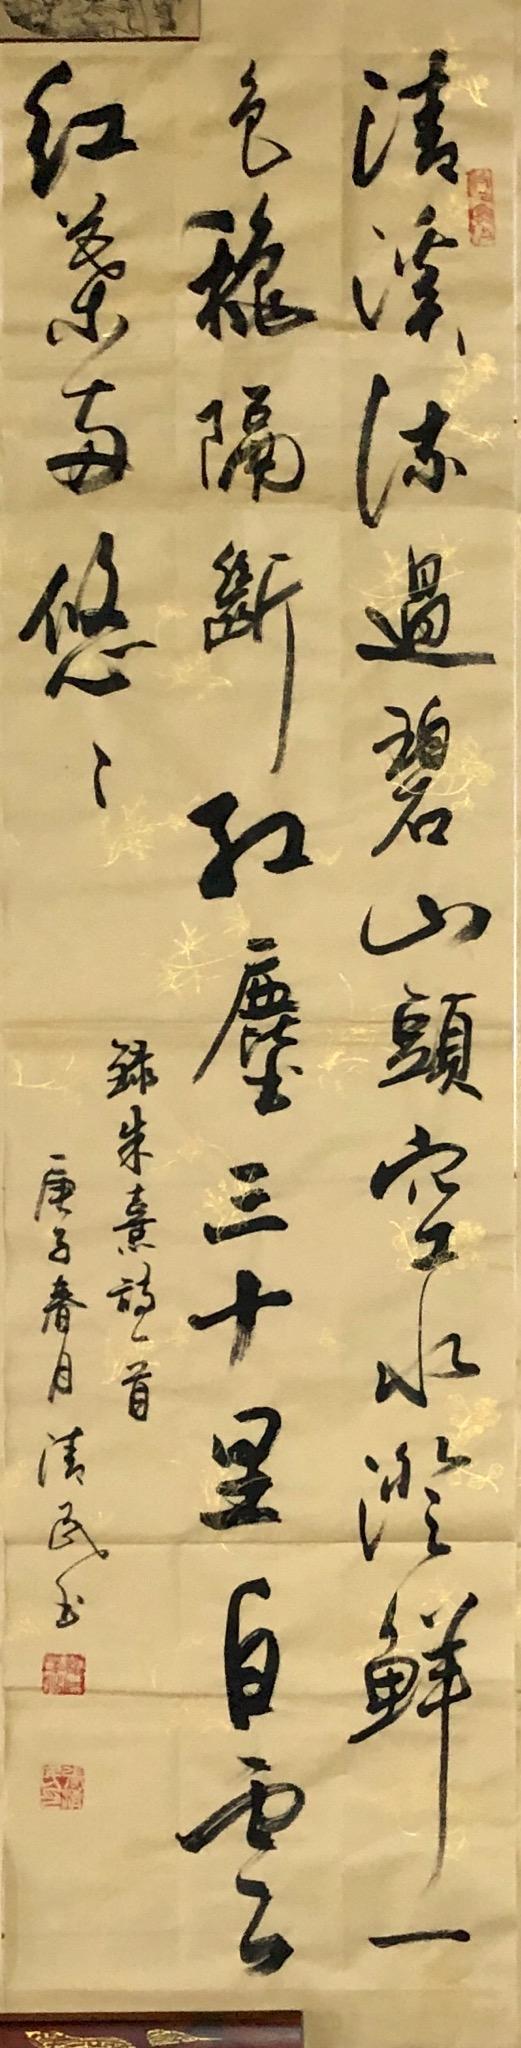 清溪流過碧山頭空水澄鮮一
色穐隔斷紅塵三十里白雲
紅葉両悠〻
録朱熹詩一首
庚子春月清民书